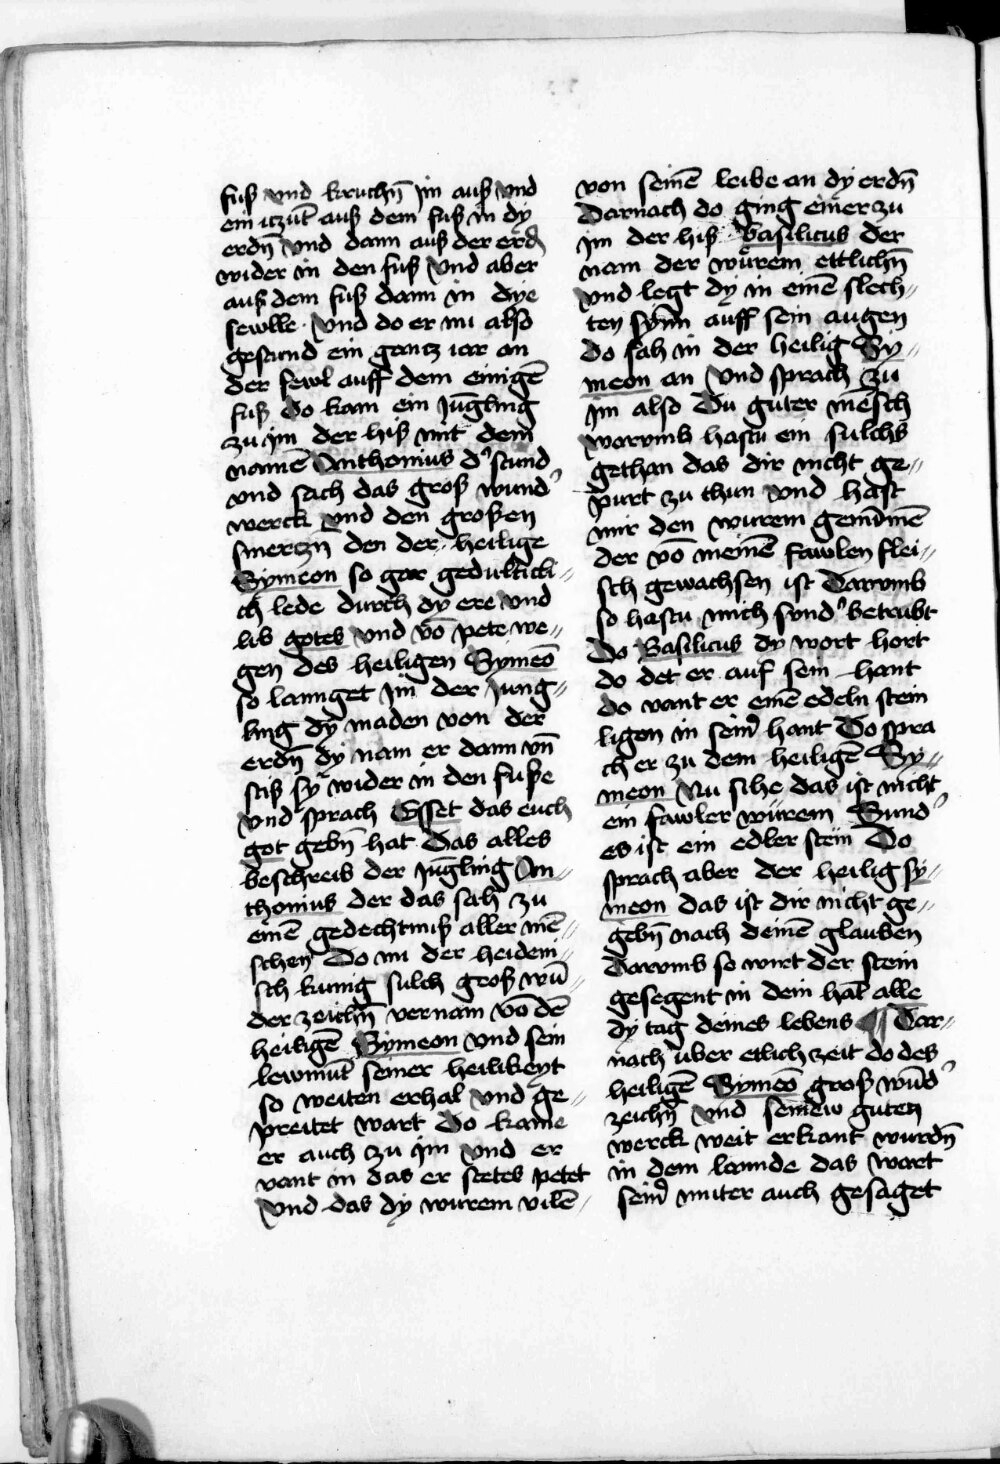 fuß vnd kruchn̄ jm auß vnd
ein iczūt auß dem fuß in dy
erdn̄ vnd dann auß der erd
wider in den fuß vnd aber
auß dem fuß dann in dÿe
sewlle · vnd do er nu also
gesund ein gantz iar an
der sewl auff dem einigē
fuß do kam ein jūgling
zu ym der hiß mit dem
namē Anthonius d' stund
vnd sach das groß wund'
werck vnd den großen
smerczn̄ den der heilige
Symeon so gar gedulticli-
ch lede durch dy ere vnd
lib gotes vnd vō pete we-
gen des heiligen Symeō
so lannget jm der jung-
king dy maden von der
erdn̄ dy nam er dann vn̄
stiß sy wider in den fuße
vnd sprach Esset das euch
got gebn̄ hat Das alles
beschreib der jūgling An-
thonius der das sah zu
einē gedechtniß aller mē-
schen Do nu der heideni-
sch kunig sulch groß wū-
der zeichn̄ vernam vō dē
heiligē Symeon vnd sein
lewmūt seiner heilikeyt
so weiten erhal vnd ge-
preitet wart do kame
er auch zu ym vnd er
vant in das er stetes petet
vnd das dy wurem vilē
von seinē leibe an dy erdn̄
Darnach do ging einer zu
jm der hiß Basilicus der
nam der würem ettlichn̄
vnd legt dy in einē slech-
ten synn auff sein augen
do sah in der heilig Sy-
meon an vnd sprach zu
jm also Du guter mēsch
warvmb hastu ein sulchs
gethan das dir nicht ge-
purt zu thun vnd hast
mir den wurem genūmē
der vō meinē fawlen flei-
sch gewachsen ist Darvmb
so hastu mich sund' betrubt
do Basilicus dy wort hort
do det er auf sein hant
do vant er einē edeln stein
ligen in sein' hant Do spra
ch er zu dem heiligē Sy-
meon Nu sihe das ist nicht
ein fawler würem Sund'
es ist ein edler stein Do
sprach aber der heilig sy-
meon das ist dir nicht ge-
gebn̄ nach deinē glauben
darvmb so wirt der stein
gesegent in dein hāt alle
dy tag deines lebens ¶ Dar-
nach über etlich zeit do des
heiligē Symeō groß wūd'
zeichn̄ vnd seinew guten
werck weit erkant wurdn̄
in dem lannde das wart
sein' muter auch gesaget